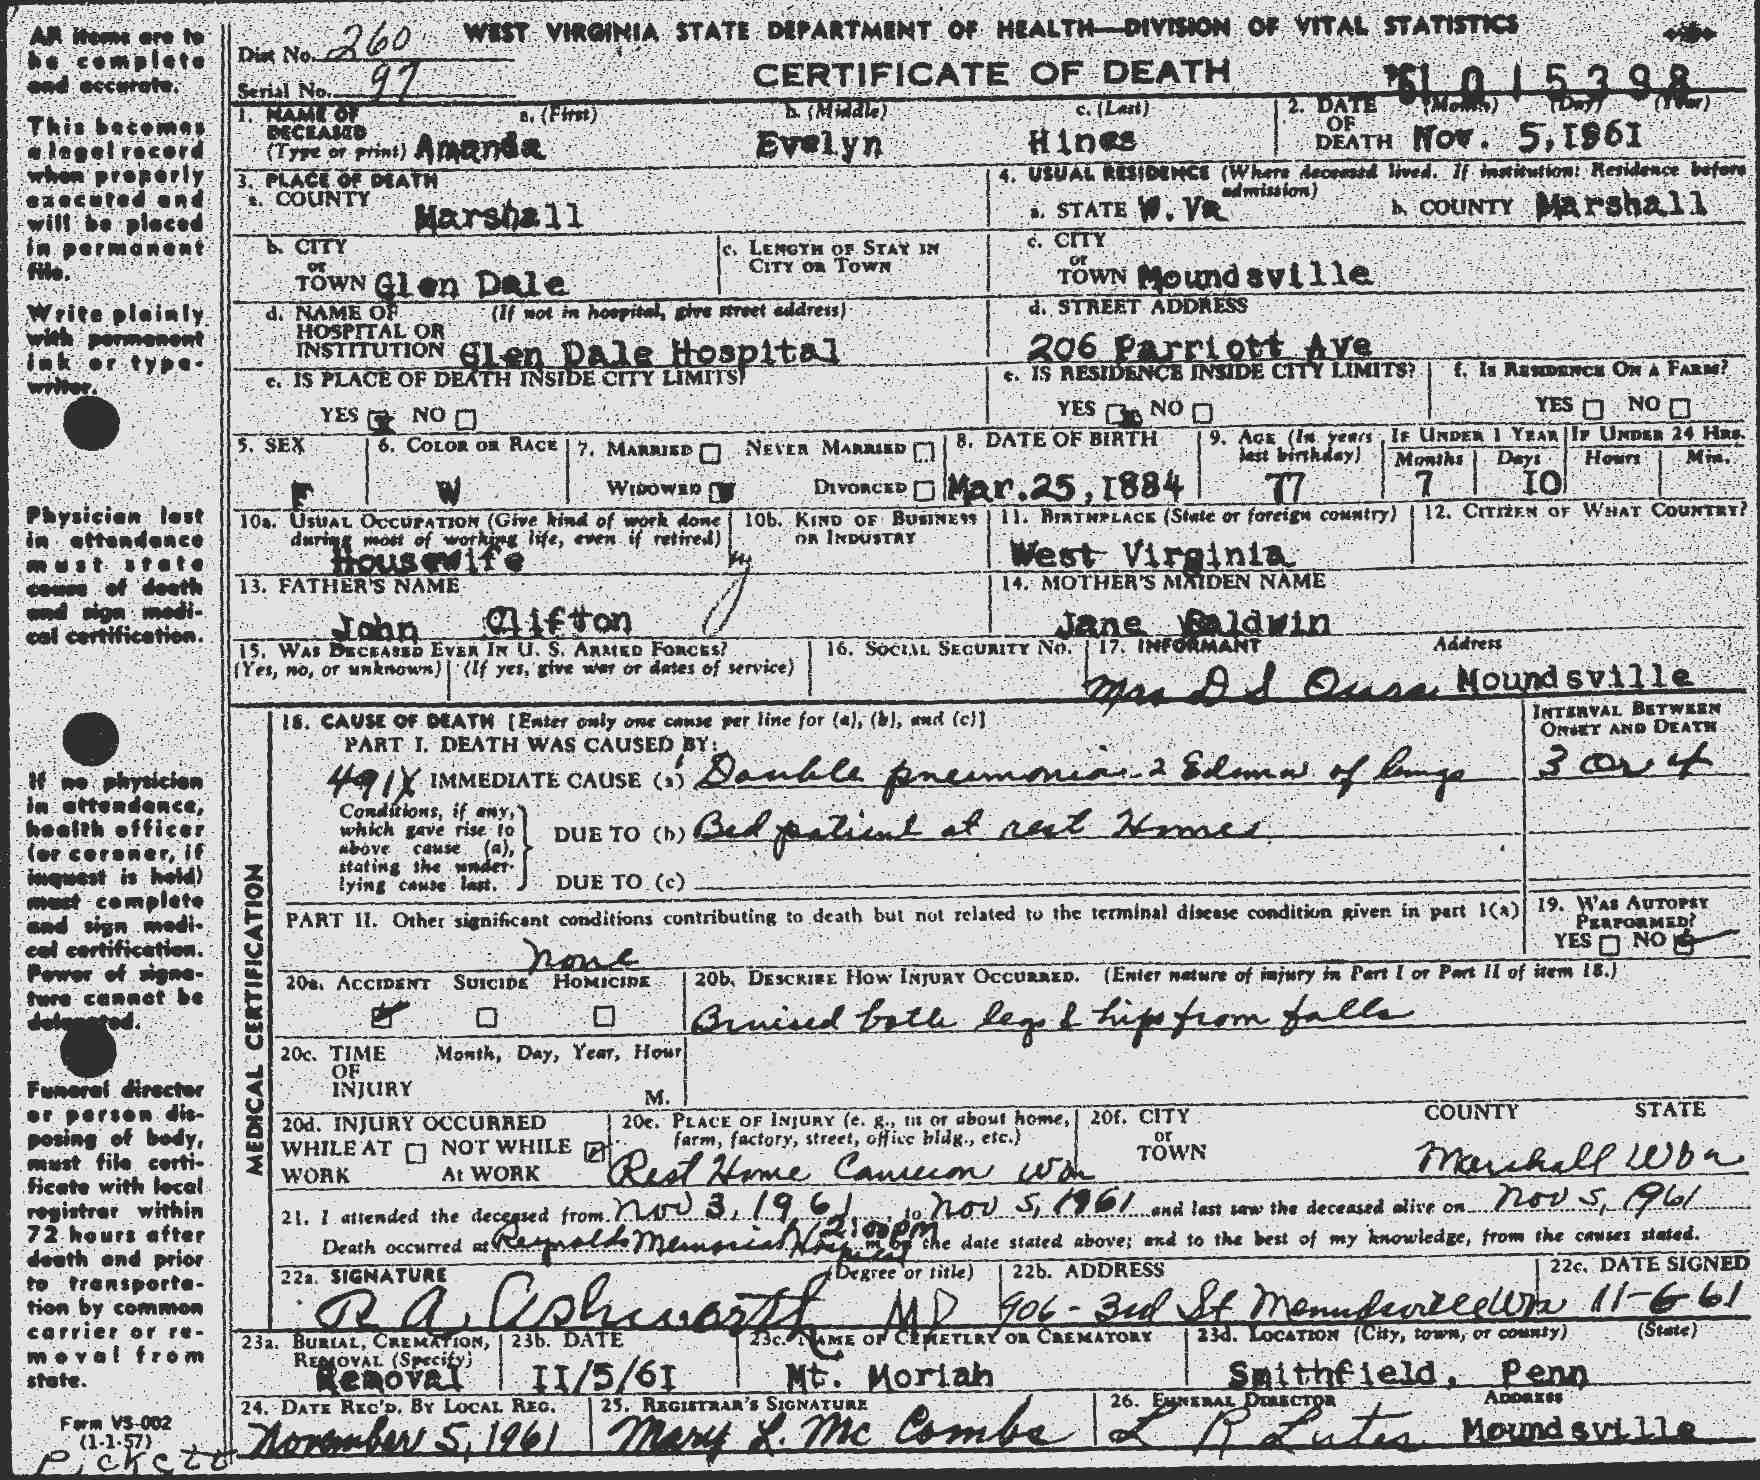 WEST VIRGINIA STATE DEPARTMENT OF HEALTH—DIVISION OF VITAL STATISTICS
Dist No. 260
Serial No. 97
CERTIFICATE OF DEATH
61 015398
1. NAME OF DECEASED (Type or print) a. (First) b. (Middle) c. (Last)
Amanda Evelyn Hines
2. DATE OF DEATH (Month) (Day) (Year)
Nov. 5, 1961
3. PLACE OF DEATH
a. COUNTY Marshall
4. USUAL RESIDENCE (Where deceased lived. If institution: Residence before admission)
a. STATE W.Va b. COUNTY Marshall
b. CITY or TOWN Glen Dale
c. LENGTH OF STAY IN CITY OR TOWN
c. CITY or TOWN Moundsville
d. NAME OF HOSPITAL OR INSTITUTION (If not in hospital, give street address)
Glen Dale Hospital
d. STREET ADDRESS
206 Parriott Ave
e. IS PLACE OF DEATH INSIDE CITY LIMITS?
YES x NO
e. IS RESIDENCE INSIDE CITY LIMITS?
YES x NO
f. IS RESIDENCE ON A FARM?
YES NO
5. SEX F
6. COLOR OR RACE W
7. MARRIED NEVER MARRIED
WIDOWED DIVORCED
8. DATE OF BIRTH
Mar.25,1884
9. AGE (In years last birthday) 77
IF UNDER 1 YEAR Months 7 Days 10
IF UNDER 24 HRS. Hours Min.
10a. USUAL OCCUPATION (Give kind of work done during most of working life, even if retired)
Housewife
10b. KIND OF BUSINESS OR INDUSTRY
11. BIRTHPLACE (State or foreign country)
West Virginia
12. CITIZEN OF WHAT COUNTRY?
13. FATHER'S NAME
John Clifton
14. MOTHER'S MAIDEN NAME
Jane Baldwin
15. WAS DECEASED EVER IN U. S. ARMED FORCES?
(Yes, no, or unknown) (If yes, give war or dates of service)
16. SOCIAL SECURITY NO.
17. INFORMANT Address
Mrs D S Ours Moundsville
MEDICAL CERTIFICATION
18. CAUSE OF DEATH [Enter only one cause per line for (a), (b), and (c)]
INTERVAL BETWEEN ONSET AND DEATH
PART I. DEATH WAS CAUSED BY:
491X IMMEDIATE CAUSE (a) Double pneumonia & Edema of lungs 3 or 4
Conditions, if any, which gave rise to above cause (a), stating the underlying cause last.
DUE TO (b) Bed patient at rest Homes
DUE TO (c)
PART II. Other significant conditions contributing to death but not related to the terminal disease condition given in part 1(a)
none
19. WAS AUTOPSY PERFORMED?
YES NO
20a. ACCIDENT SUICIDE HOMICIDE
20b. DESCRIBE HOW INJURY OCCURRED. (Enter nature of injury in Part I or Part II of item 18.)
Bruised both legs & hips from falls
20c. TIME OF INJURY Month, Day, Year, Hour
M.
20d. INJURY OCCURRED
WHILE AT WORK NOT WHILE At WORK
20e. PLACE OF INJURY (e. g., in or about home, farm, factory, street, office bldg., etc.)
Rest Home Cameron W Va
20f. CITY or TOWN COUNTY STATE
Marshall W Va
21. I attended the deceased from Nov 3, 1961, to Nov 5, 1961 and last saw the deceased alive on Nov 5, 1961
Death occurred at Reynolds Memorial Hospital 2:00 pm m on the date stated above; and to the best of my knowledge, from the causes stated.
22a. SIGNATURE (Degree or title)
R A Ashworth MD
22b. ADDRESS
906 - 3rd St Moundsville W Va
22c. DATE SIGNED
11-6-61
23a. BURIAL, CREMATION, REMOVAL (Specify)
Removal
23b. DATE
11/5/61
23c. NAME OF CEMETERY OR CREMATORY
Mt. Moriah
23d. LOCATION (City, town, or county) (State)
Smithfield, Penn
24. DATE REC'D. BY LOCAL REG.
November 5, 1961
25. REGISTRAR'S SIGNATURE
Mary L. McCombs
26. FUNERAL DIRECTOR ADDRESS
L R Lutes Moundsville
All items are to
be complete
and accurate.
This becomes
a legal record
when properly
executed and
will be placed
in permanent
file.
Write plainly
with permanent
ink or type-
writer.
Physician last
in attendance
must state
cause of death
and sign medi-
cal certification.
If no physician
in attendance,
health officer
(or coroner, if
inquest is held)
must complete
and sign medi-
cal certification.
Power of signa-
ture cannot be
delegated.
Funeral director
or person dis-
posing of body,
must file certi-
ficate with local
registrar within
72 hours after
death and prior
to transporta-
tion by common
carrier or re-
moval from
state.
Form VS-002
(1-1-57)
Pickett